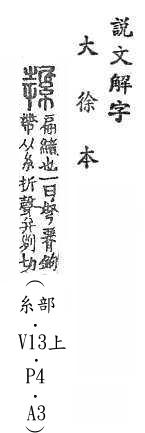 說文解字
大徐本
扁緒也一曰弩鉤
帶从糸折聲并列切
（糸部·V13上·P4·A3）